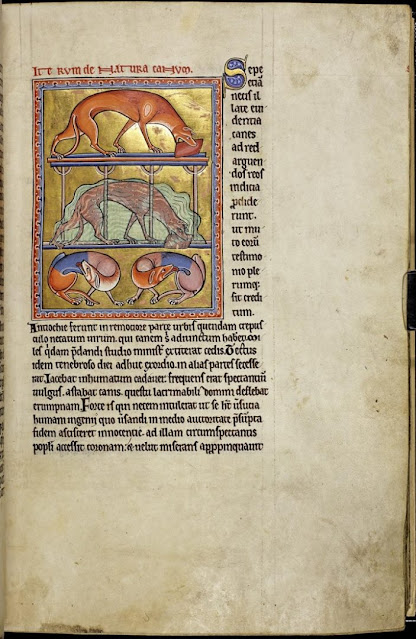 Iterum de natura canum.
Sepe
etiā
necis il
late eui
dentia
canes
ad red
arguen
dos reos
indicia
ꝓdide
runt.
ut mu
to eorū
testimo
nio ple
rumq;
sit credi
tum.
Antiochie ferunt in remotiore parte urbis quendam crepus
culo necatum uirum. qui canem s̄ adiunctum haberet. Mi
les q̇dam p̄dandi studio minist̄ extiterat cedis. Tectus
idem tenebroso diei adhuc exordio. in alias partes secesse
rat. Iacebat inhumatum cadauer. frequens erat spectantiū
uulgus. astabat canis. questu lacrimabili domini deflebat
erumpnam. Forte is qui necem intulerat ut se h̄t uersutia
humani ingenii quo uersandi in medio auctoritate p̄sūpta
fidem ascisceret innocentie. ad illam circumspectantis
populi accessit coronam. & uelut miserans appropinquauit